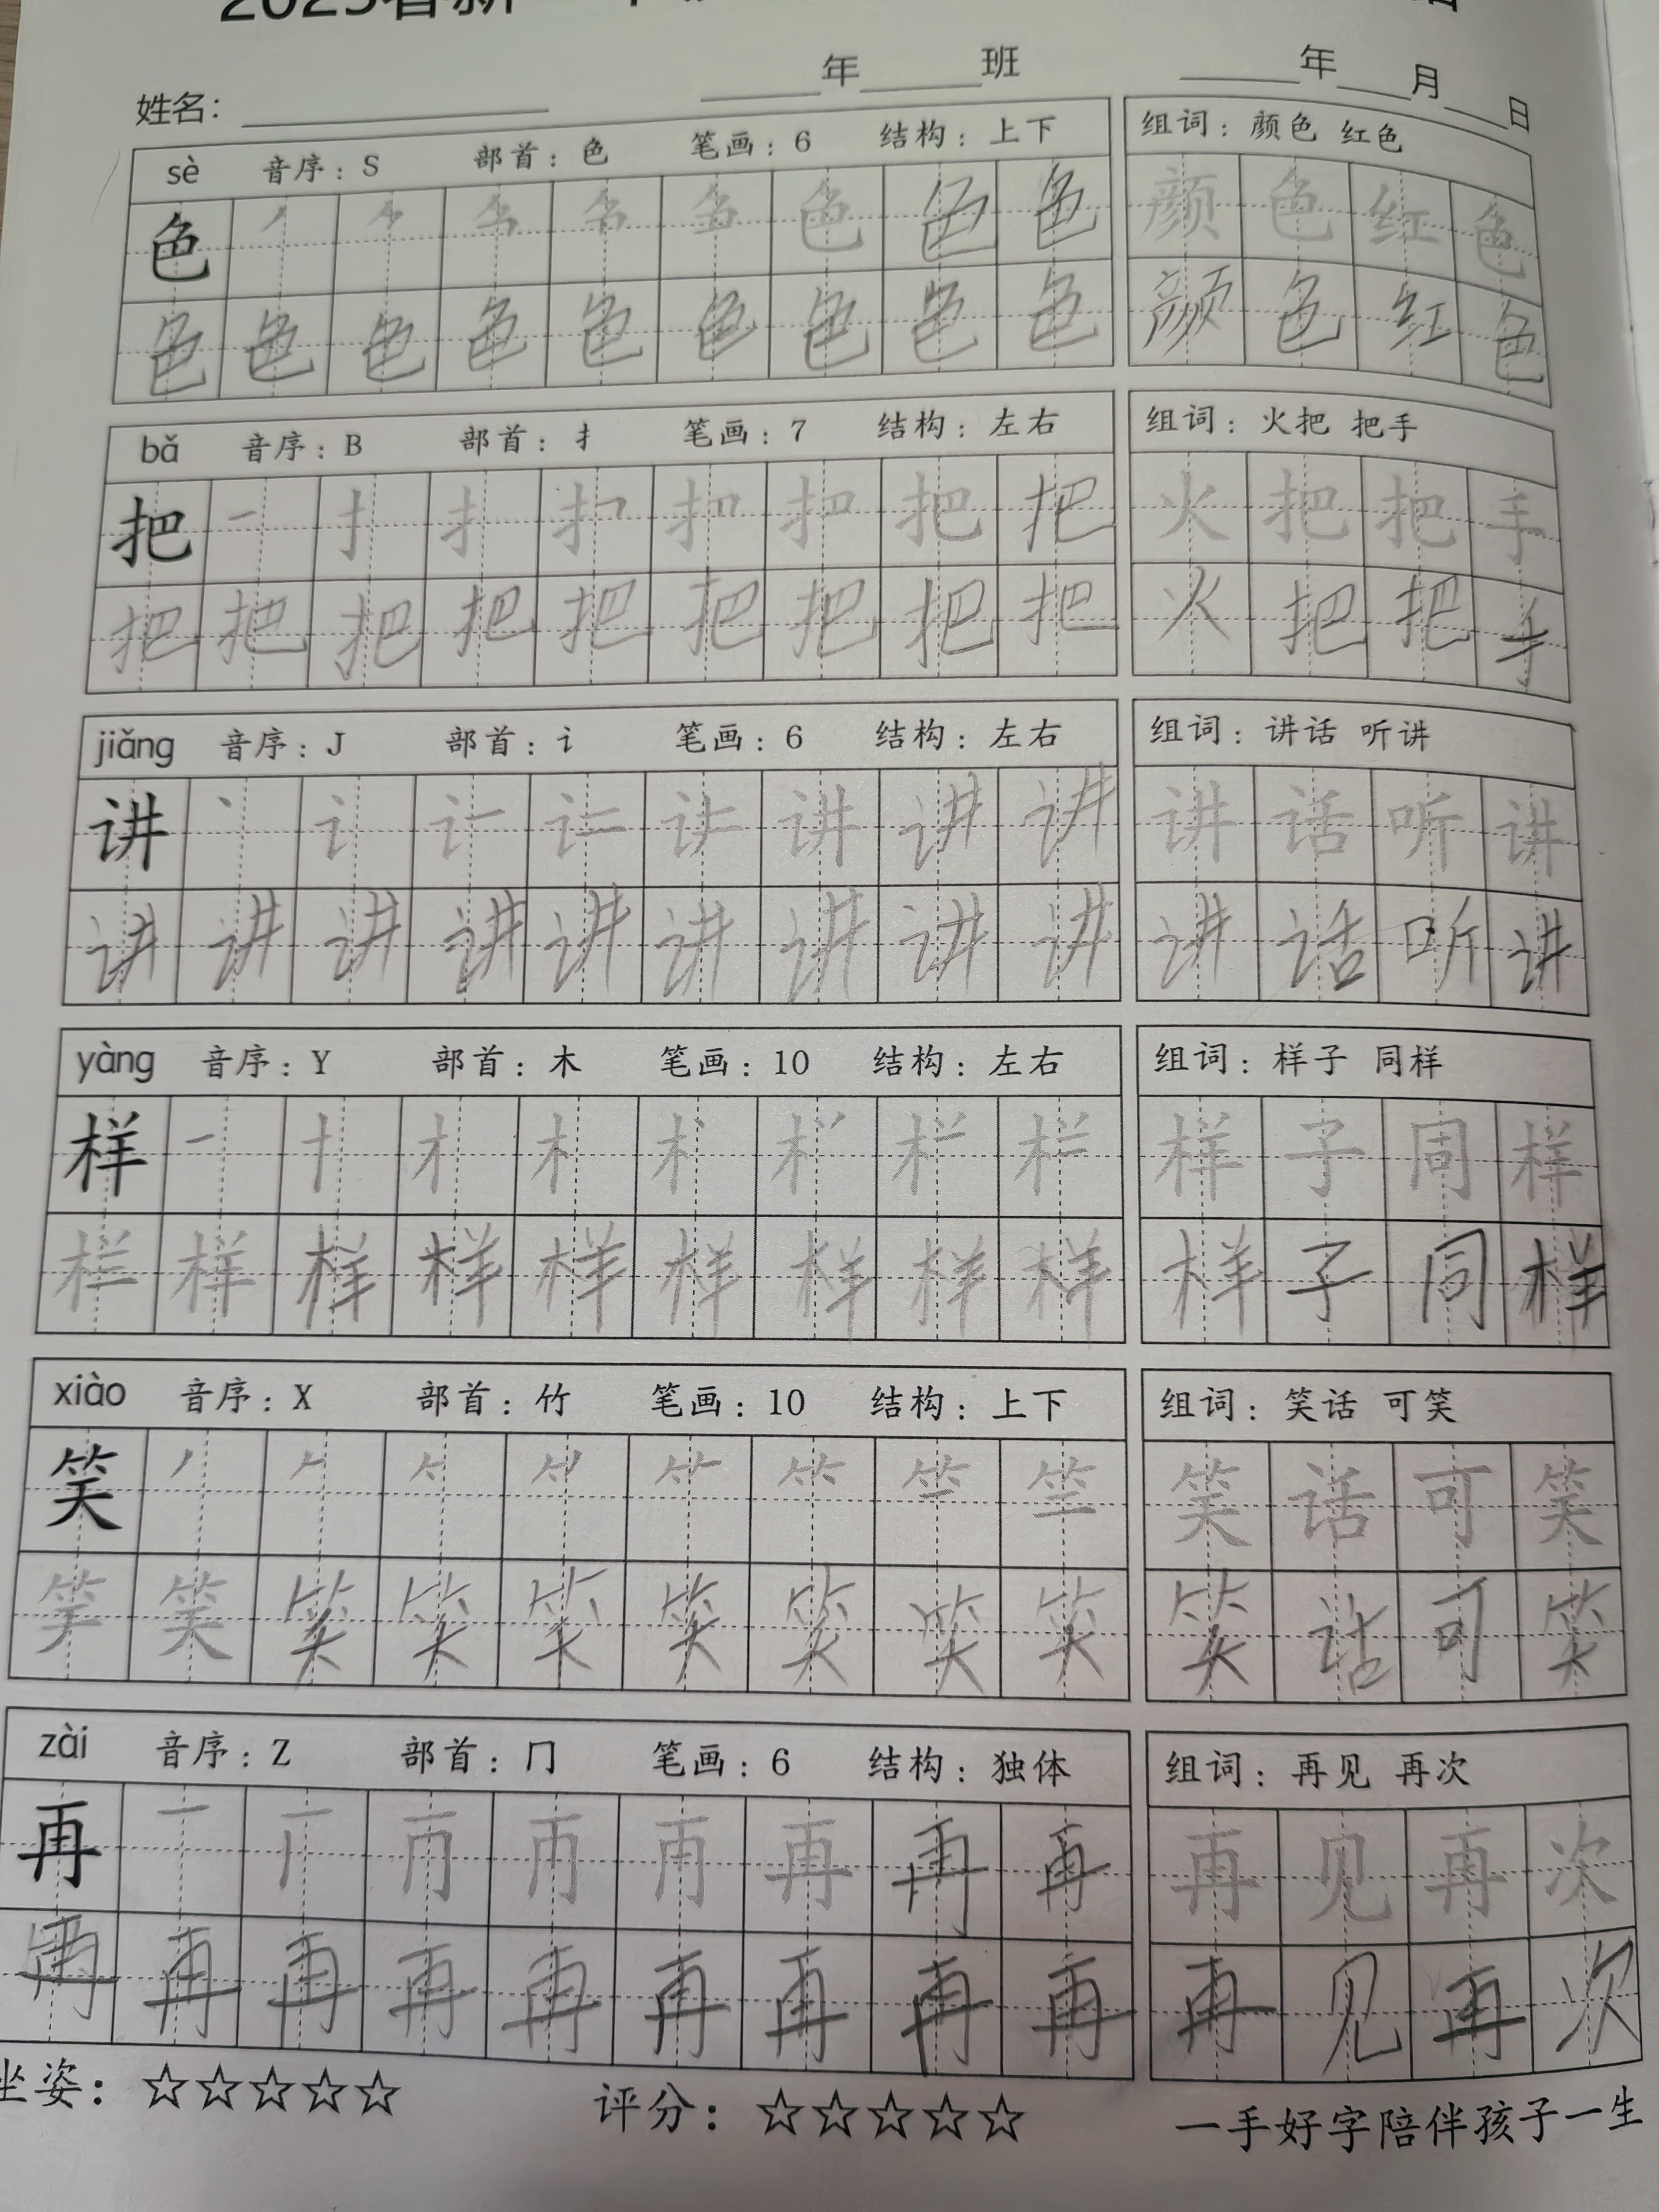 2025春新一
姓名：________ ____年____班 ____年____月____日
sè 音序：S 部首：色 笔画：6 结构：上下 组词：颜色 红色
色 色 色 色 颜 色 红 色
色 色 色 色 色 色 色 色 色 颜 色 红 色
bǎ 音序：B 部首：扌 笔画：7 结构：左右 组词：火把 把手
把 一 扌 扌 把 把 火 把 把 手
把 把 把 把 把 把 把 把 把 火 把 把 手
jiǎng 音序：J 部首：讠 笔画：6 结构：左右 组词：讲话 听讲
讲 丶 讠 讲 讲 讲 讲 话 听 讲
讲 讲 讲 讲 讲 讲 讲 讲 讲 讲 话 听 讲
yàng 音序：Y 部首：木 笔画：10 结构：左右 组词：样子 同样
样 一 十 才 木 样 子 周 样
样 样 样 样 样 样 样 样 样 子 同 样
xiào 音序：X 部首：竹 笔画：10 结构：上下 组词：笑话 可笑
笑 丿 𠂉 笑 话 可 笑
笑 笑 笑 笑 笑 笑 笑 笑 笑 话 可 笑
zài 音序：Z 部首：冂 笔画：6 结构：独体 组词：再见 再次
再 一 再 再 再 再 见 再 次
再 再 再 再 再 再 再 再 再 再 见 再 次
坐姿：☆☆☆☆☆ 评分：☆☆☆☆☆ 一手好字陪伴孩子一生